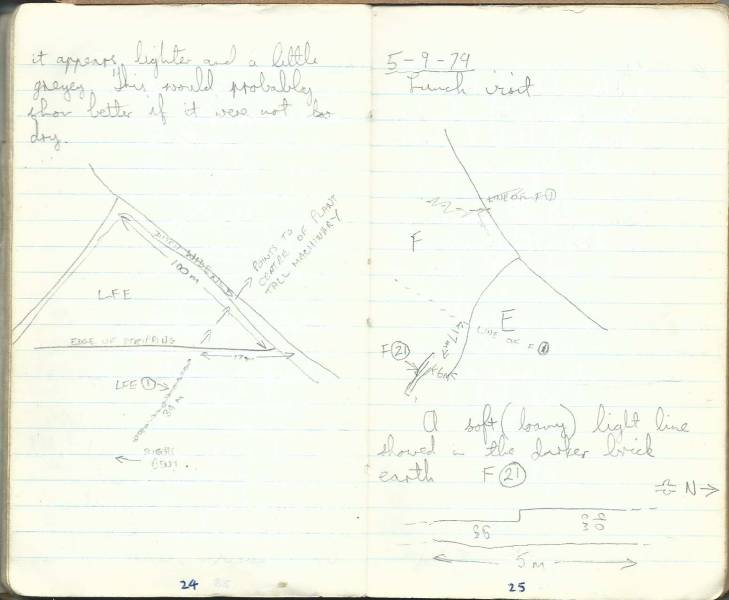 it appears lighter and a little
greyey. This would probably
show better if it were not so
dry.
POINTS TO
CENTRE OF PLANT
TALL MACHINARY
100 m
LFE
EDGE OF STRIPPING
17m
LFE ①
39 m
24
5-9-79
Lunch visit
LINE OF F①
F
E
17m
LINE OF F
F ㉑
6m
A soft (loamy) light line
showed in the darker brick
earth F ㉑
N →
5 m
25